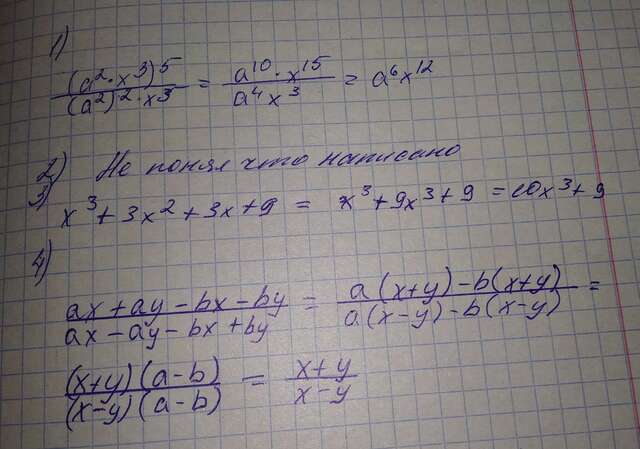 1)
(a²·x³)⁵/(a²)²·x³ = a¹⁰·x¹⁵/a⁴x³ = a⁶x¹²
2) Не понял что написано
3) x³+3x²+3x+9 = x³+9x³+9 = 10x³+9
4)
ax+ay-bx-by/ax-ay-bx+by = a(x+y)-b(x+y)/a(x-y)-b(x-y) =
(x+y)(a-b)/(x-y)(a-b) = x+y/x-y